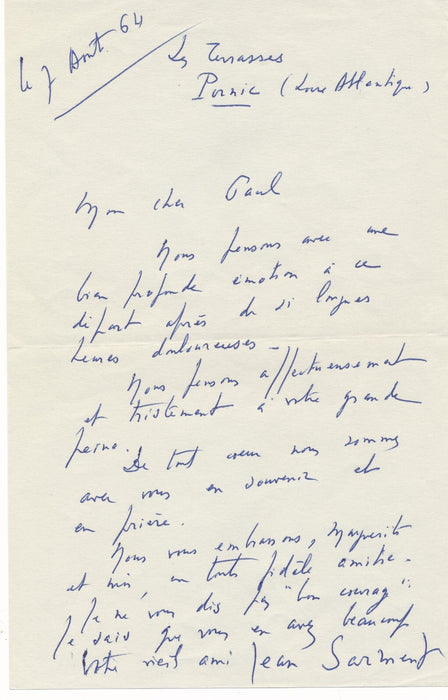 le 7 Aout 64
Les Terrasses
Pornic (Loire Atlantique)
Mon cher Paul
Nous pensons avec une
bien profonde émotion à ce
départ après de si longues
heures douloureuses -
Nous pensons affectueusement
et tristement à votre grande
peine.
De tout coeur nous sommes
avec vous en souvenir et
en prière.
Nous vous embrassons, Marguerite
et moi, en toute fidèle amitié.
Je ne vous dis pas "bon courage".
Je sais que vous en avez beaucoup
Votre vieil ami Jean Sarment